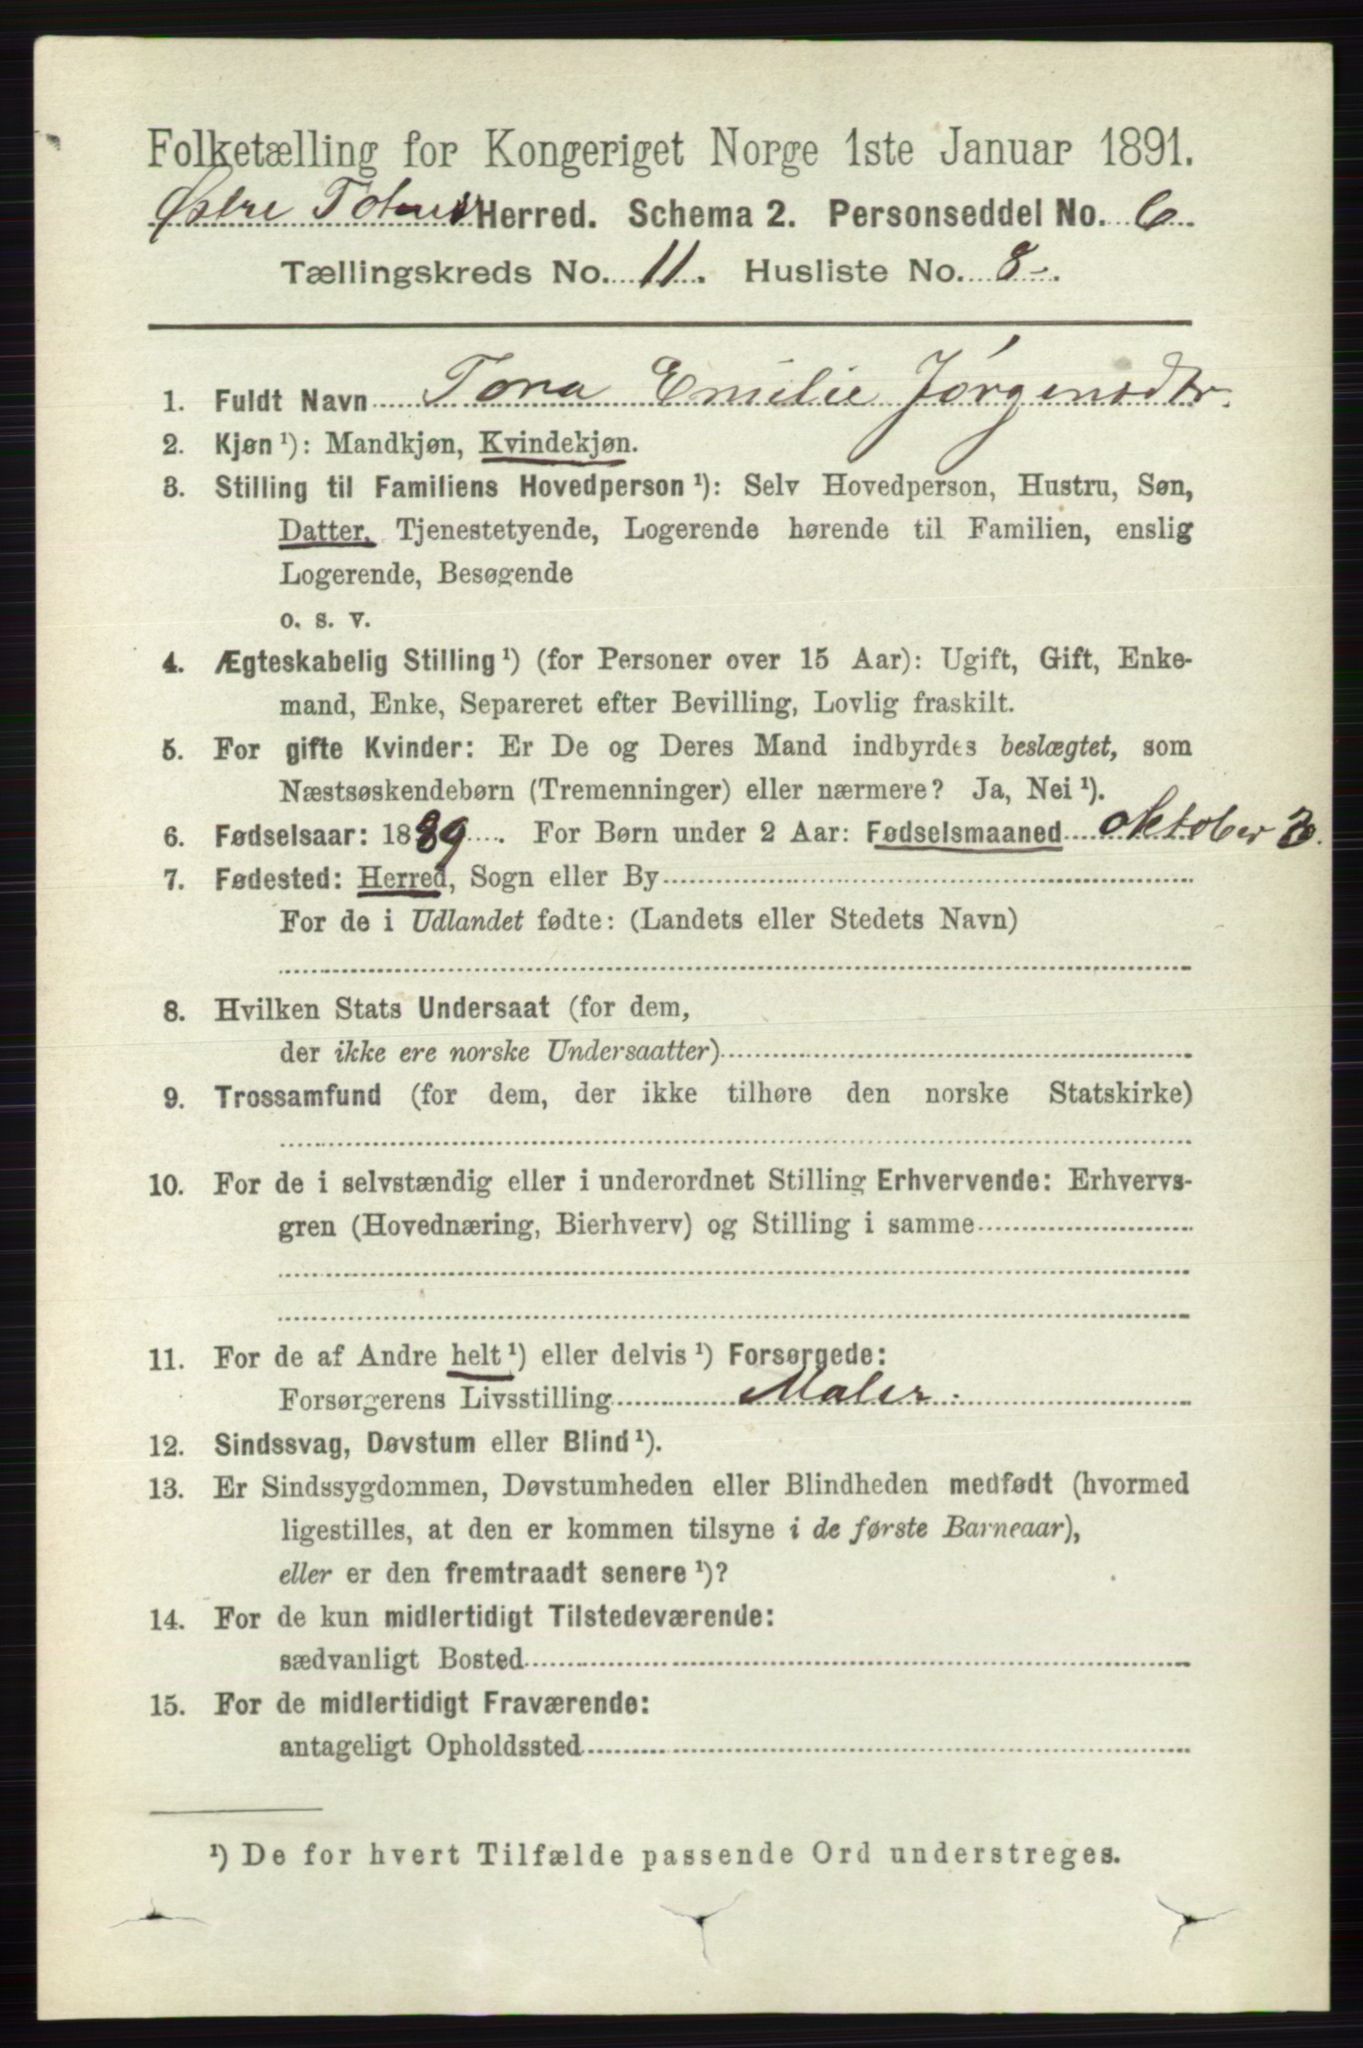 Folketælling for Kongeriget Norge 1ste Januar 1891.
Østre Toten Herred. Schema 2. Personseddel No. 6.
Tællingskreds No. 11. Husliste No. 8.
1. Fuldt Navn Tora Emilie Jørgensdtr.
2. Kjøn ¹): Mandkjøn, Kvindekjøn.
3. Stilling til Familiens Hovedperson ¹): Selv Hovedperson, Hustru, Søn,
Datter, Tjenestetyende, Logerende hørende til Familien, enslig
Logerende, Besøgende
o. s. v.
4. Ægteskabelig Stilling ¹) (for Personer over 15 Aar): Ugift, Gift, Enke-
mand, Enke, Separeret efter Bevilling, Lovlig fraskilt.
5. For gifte Kvinder: Er De og Deres Mand indbyrdes beslægtet, som
Næstsøskendebørn (Tremenninger) eller nærmere? Ja, Nei ¹).
6. Fødselsaar: 1889. For Børn under 2 Aar: Fødselsmaaned Oktober
7. Fødested: Herred, Sogn eller By
For de i Udlandet fødte: (Landets eller Stedets Navn)
8. Hvilken Stats Undersaat (for dem,
der ikke ere norske Undersaatter)
9. Trossamfund (for dem, der ikke tilhøre den norske Statskirke)
10. For de i selvstændig eller i underordnet Stilling Erhvervende: Erhvervs-
gren (Hovednæring, Bierhverv) og Stilling i samme
11. For de af Andre helt ¹) eller delvis ¹) Forsørgede:
Forsørgerens Livsstilling Maler.
12. Sindssvag, Døvstum eller Blind ¹).
13. Er Sindssygdommen, Døvstumheden eller Blindheden medfødt (hvormed
ligestilles, at den er kommen tilsyne i de første Barneaar),
eller er den fremtraadt senere ¹)?
14. For de kun midlertidigt Tilstedeværende:
sædvanligt Bosted
15. For de midlertidigt Fraværende:
antageligt Opholdssted
¹) De for hvert Tilfælde passende Ord understreges.